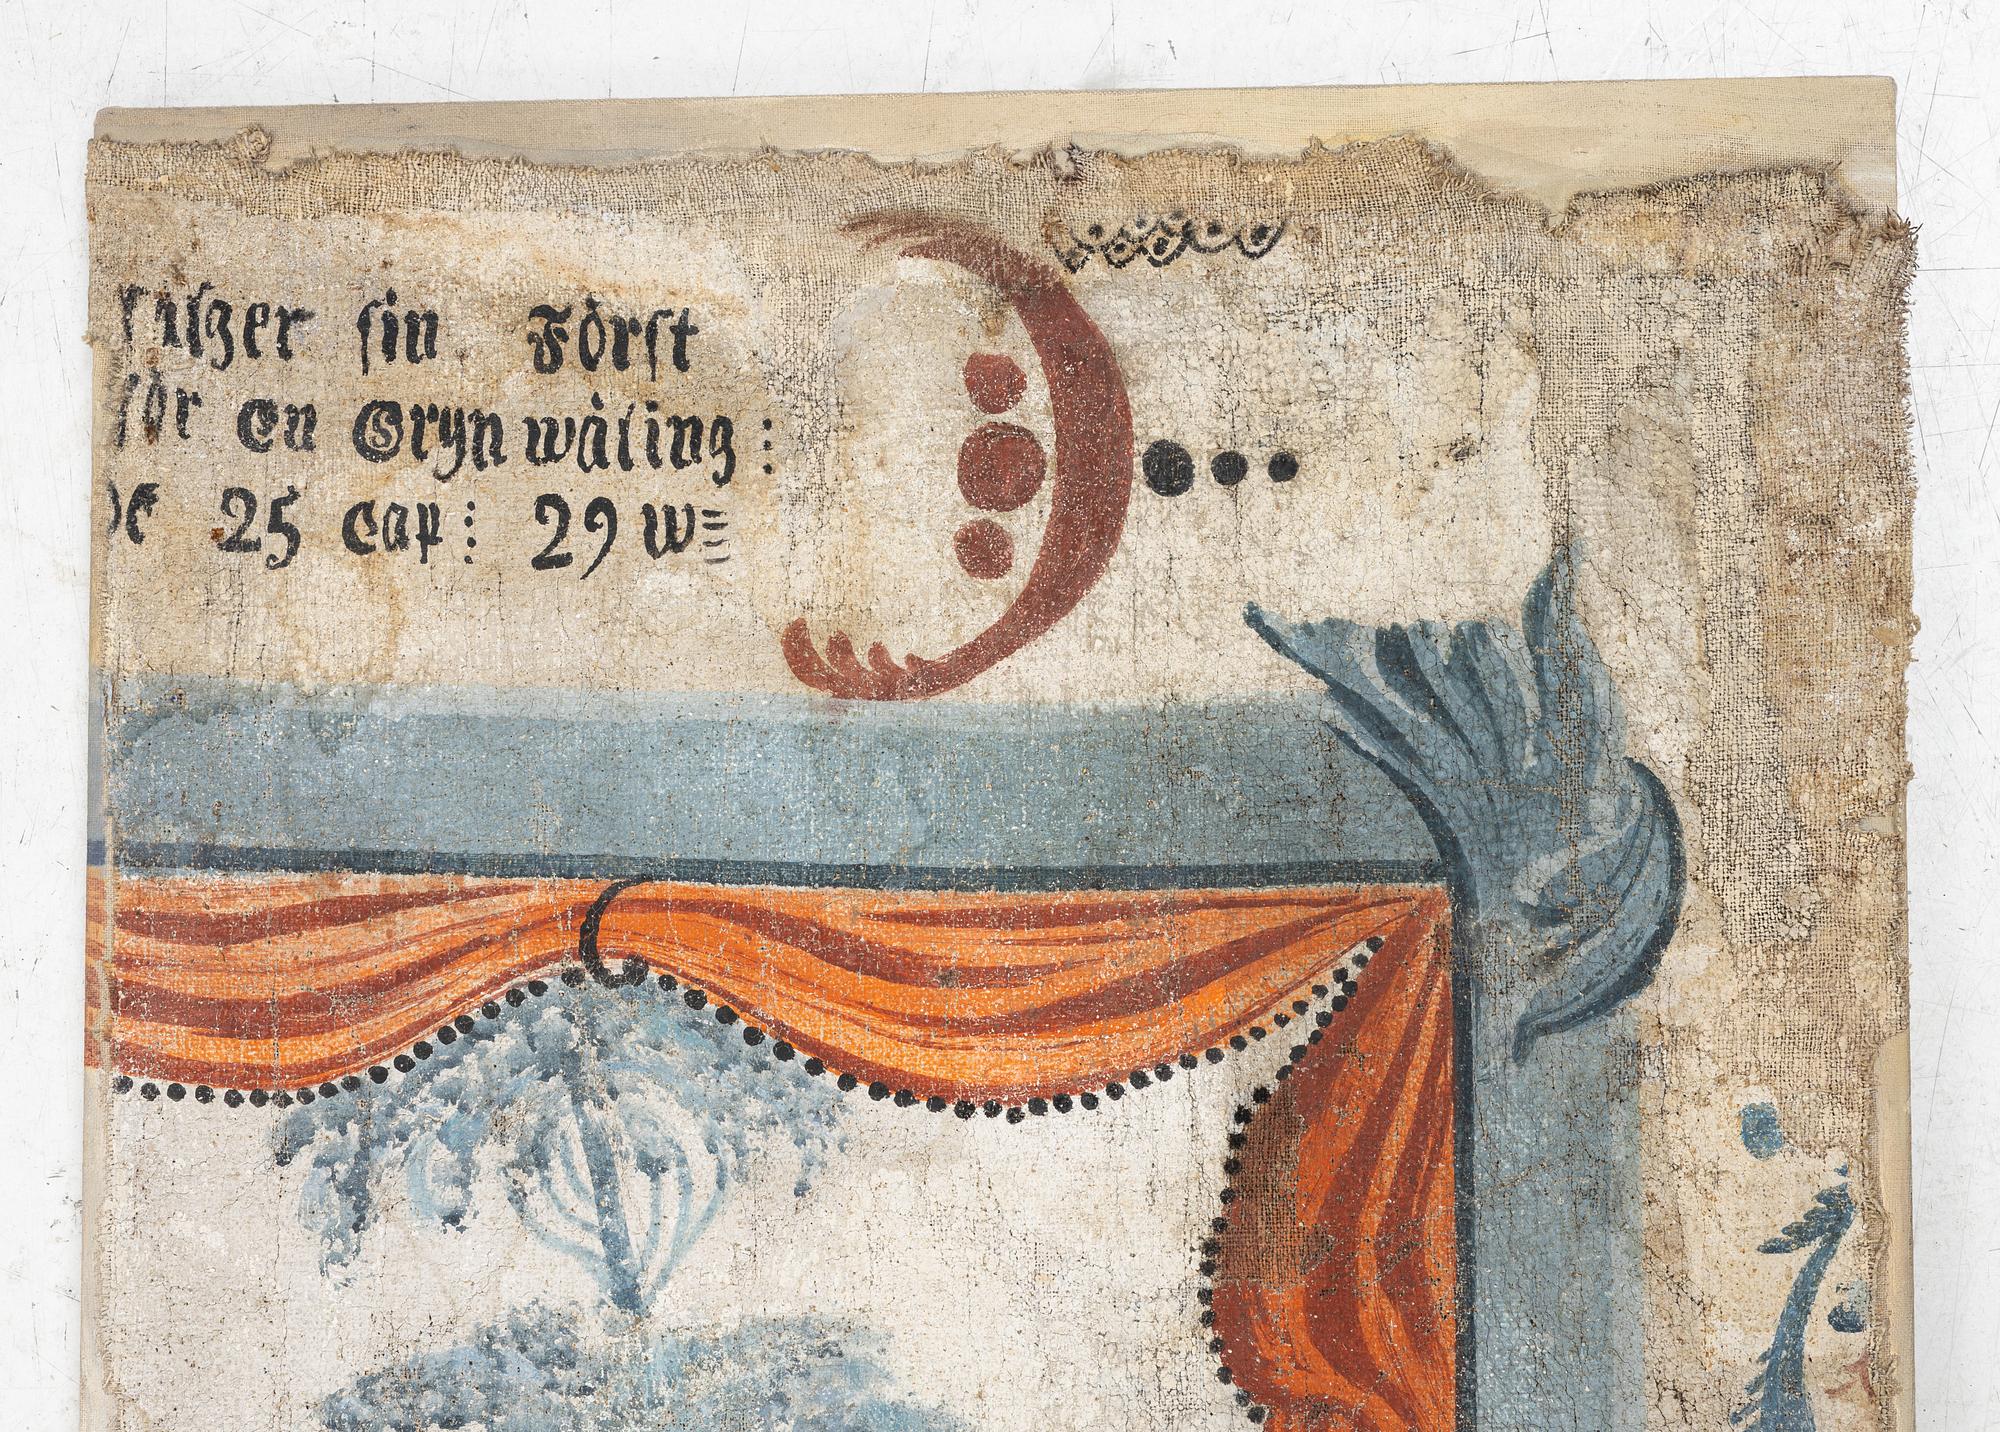 säljer sin Först
för En Gryn wäling:
25 Cap: 29 w